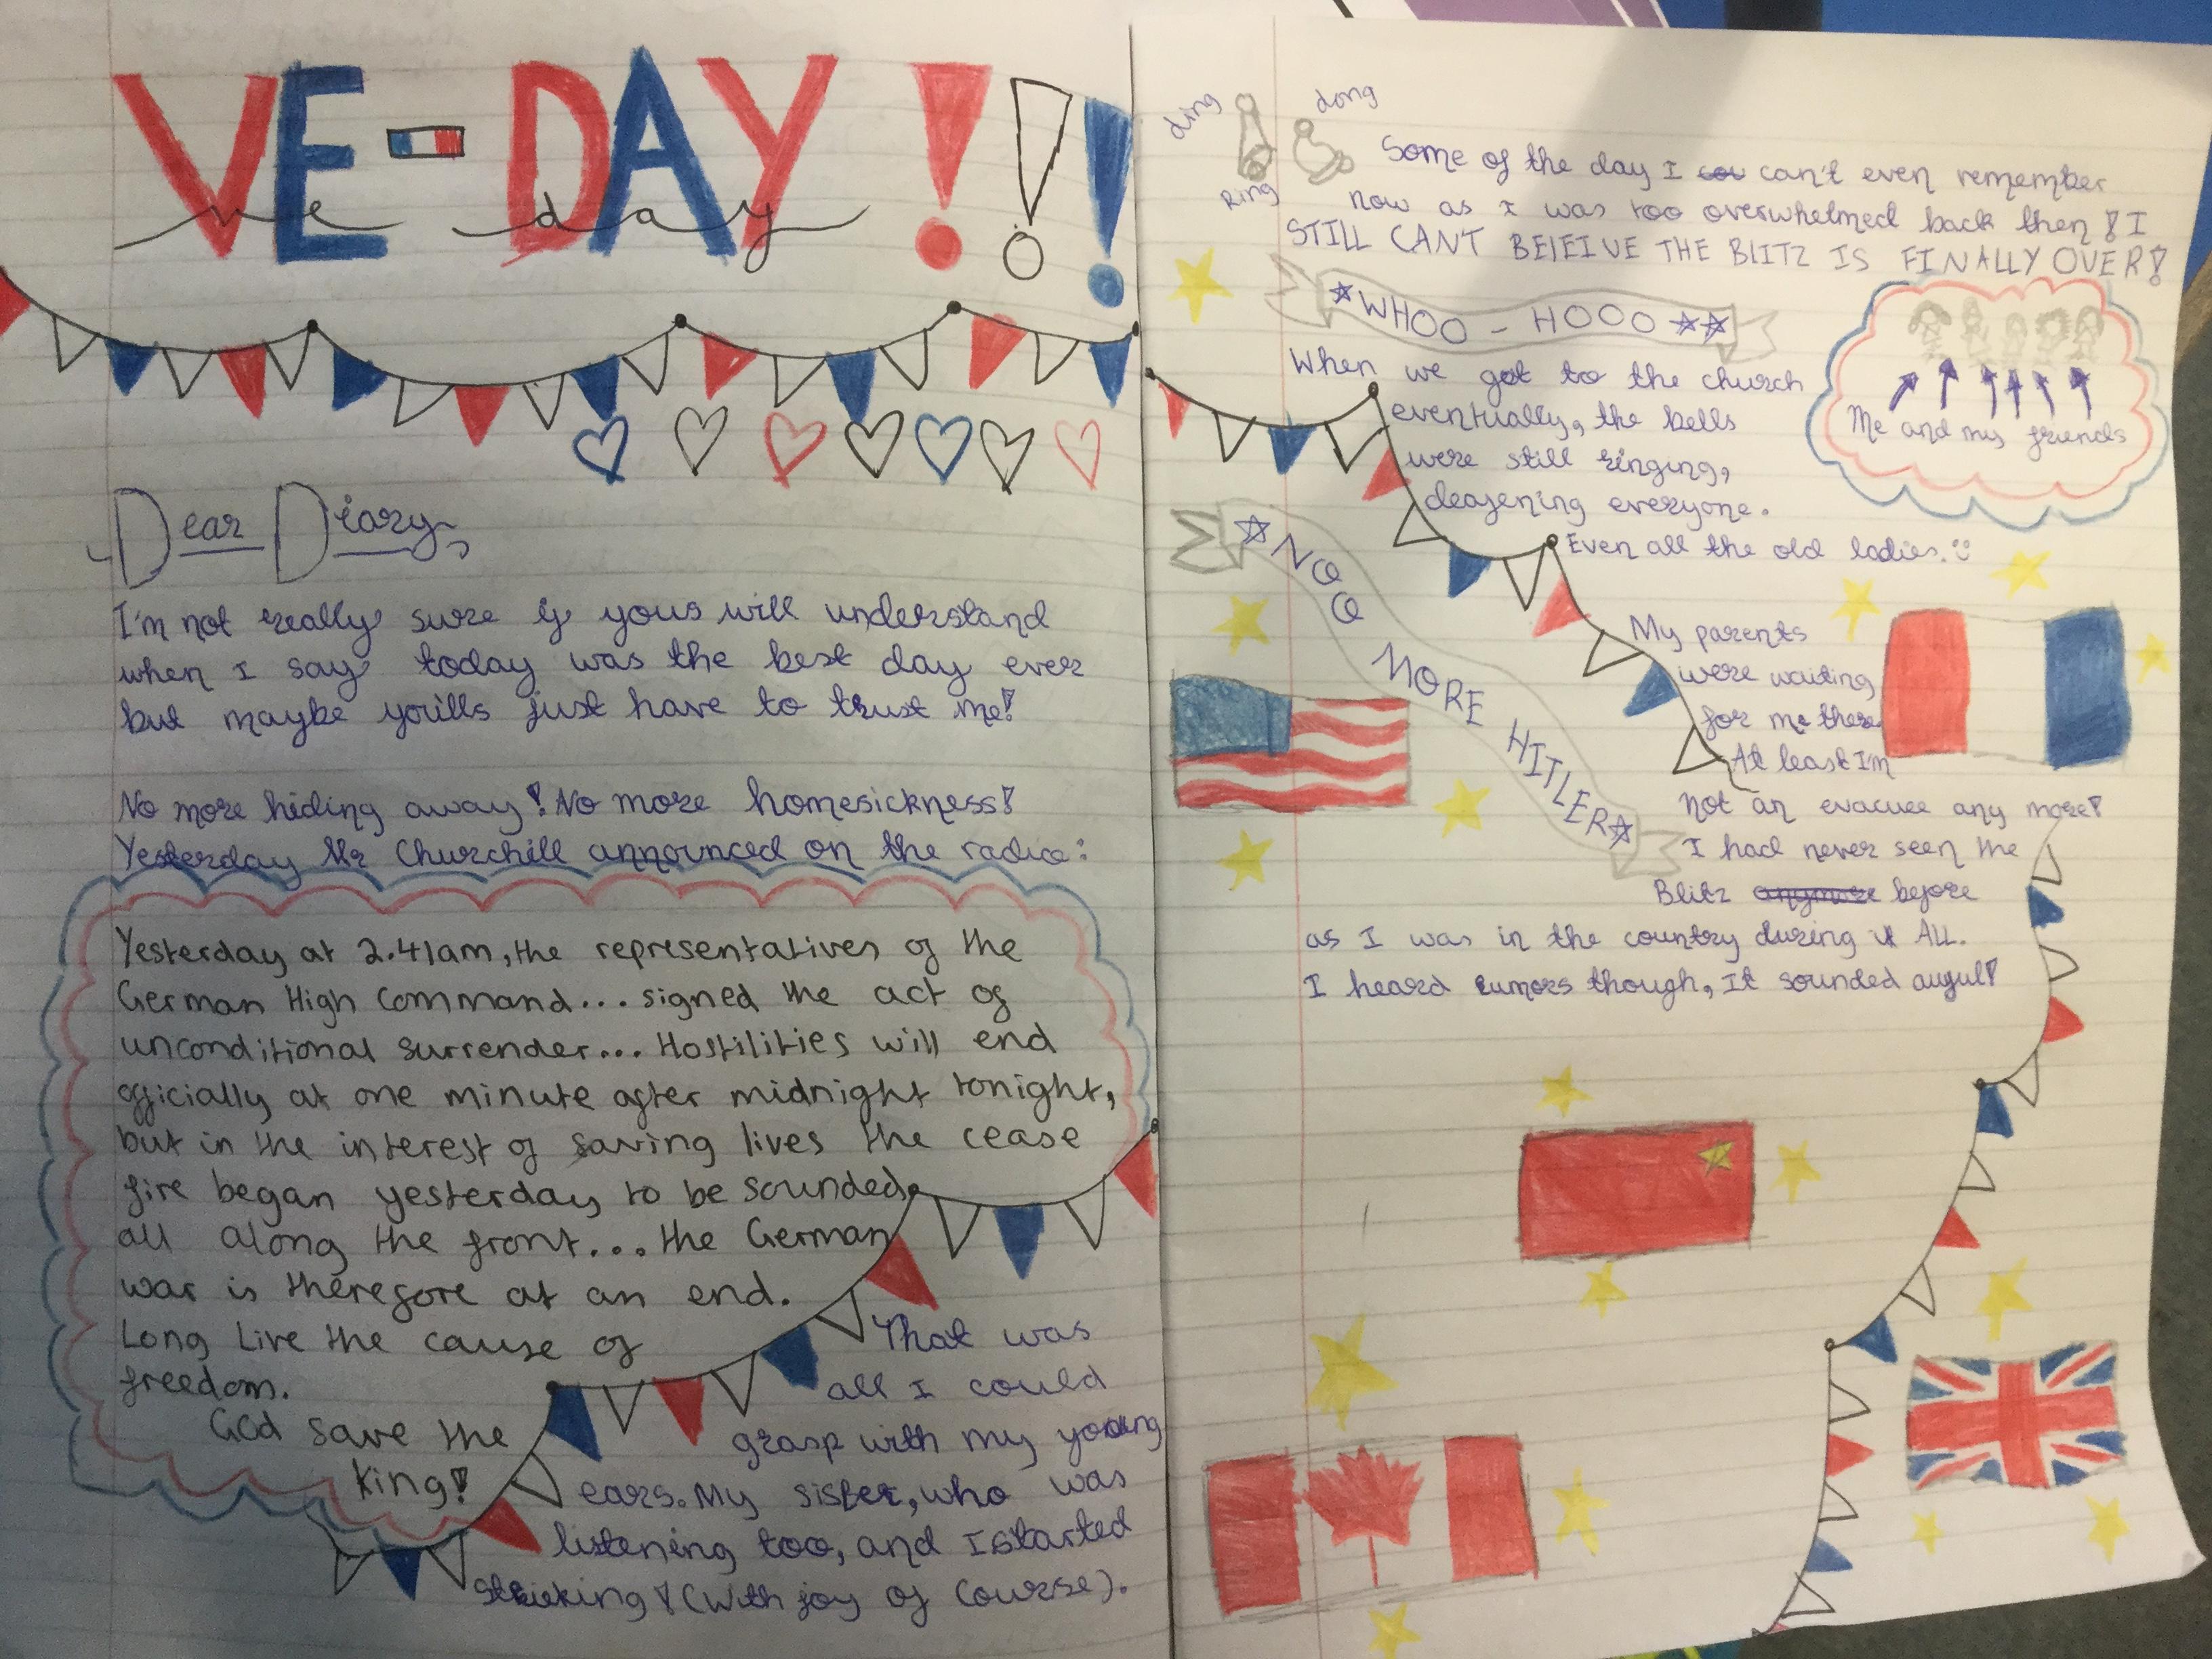 VE-DAY!!!
ve day
Dear Diary,
I'm not really sure if yous will understand
when I say today was the best day ever
but maybe you'lls just have to trust me!
No more hiding away! No more homesickness!
Yesterday Mr Churchill announced on the radio:
Yesterday at 2.41am, the representatives of the
German High Command... signed the act of
unconditional surrender... Hostilities will end
officially at one minute after midnight tonight,
but in the interest of saving lives the cease
fire began yesterday to be sounded
all along the front... the German
war is therefore at an end.
Long Live the cause of
freedom.
God save the
King!
That was
all I could
grasp with my young
ears. My sister, who was
listening too, and I started
! (With joy of course).
ding
dong
Ring
Some of the day I cou can't even remember
now as I was too overwhelmed back then! I
STILL CANT BELEIVE THE BLITZ IS FINALLY OVER!
WHOO - HOOO
Me and my friends
When we got to the church
eventually, the bells
were still ringing,
deafening everyone.
Even all the old ladies.
NOO MORE HITLER
My parents
were waiting
for me there.
At least I'm
not an evacuee any more!
I had never seen the
Blitz anymore before
as I was in the country during it ALL.
I heard rumors though, It sounded awful!